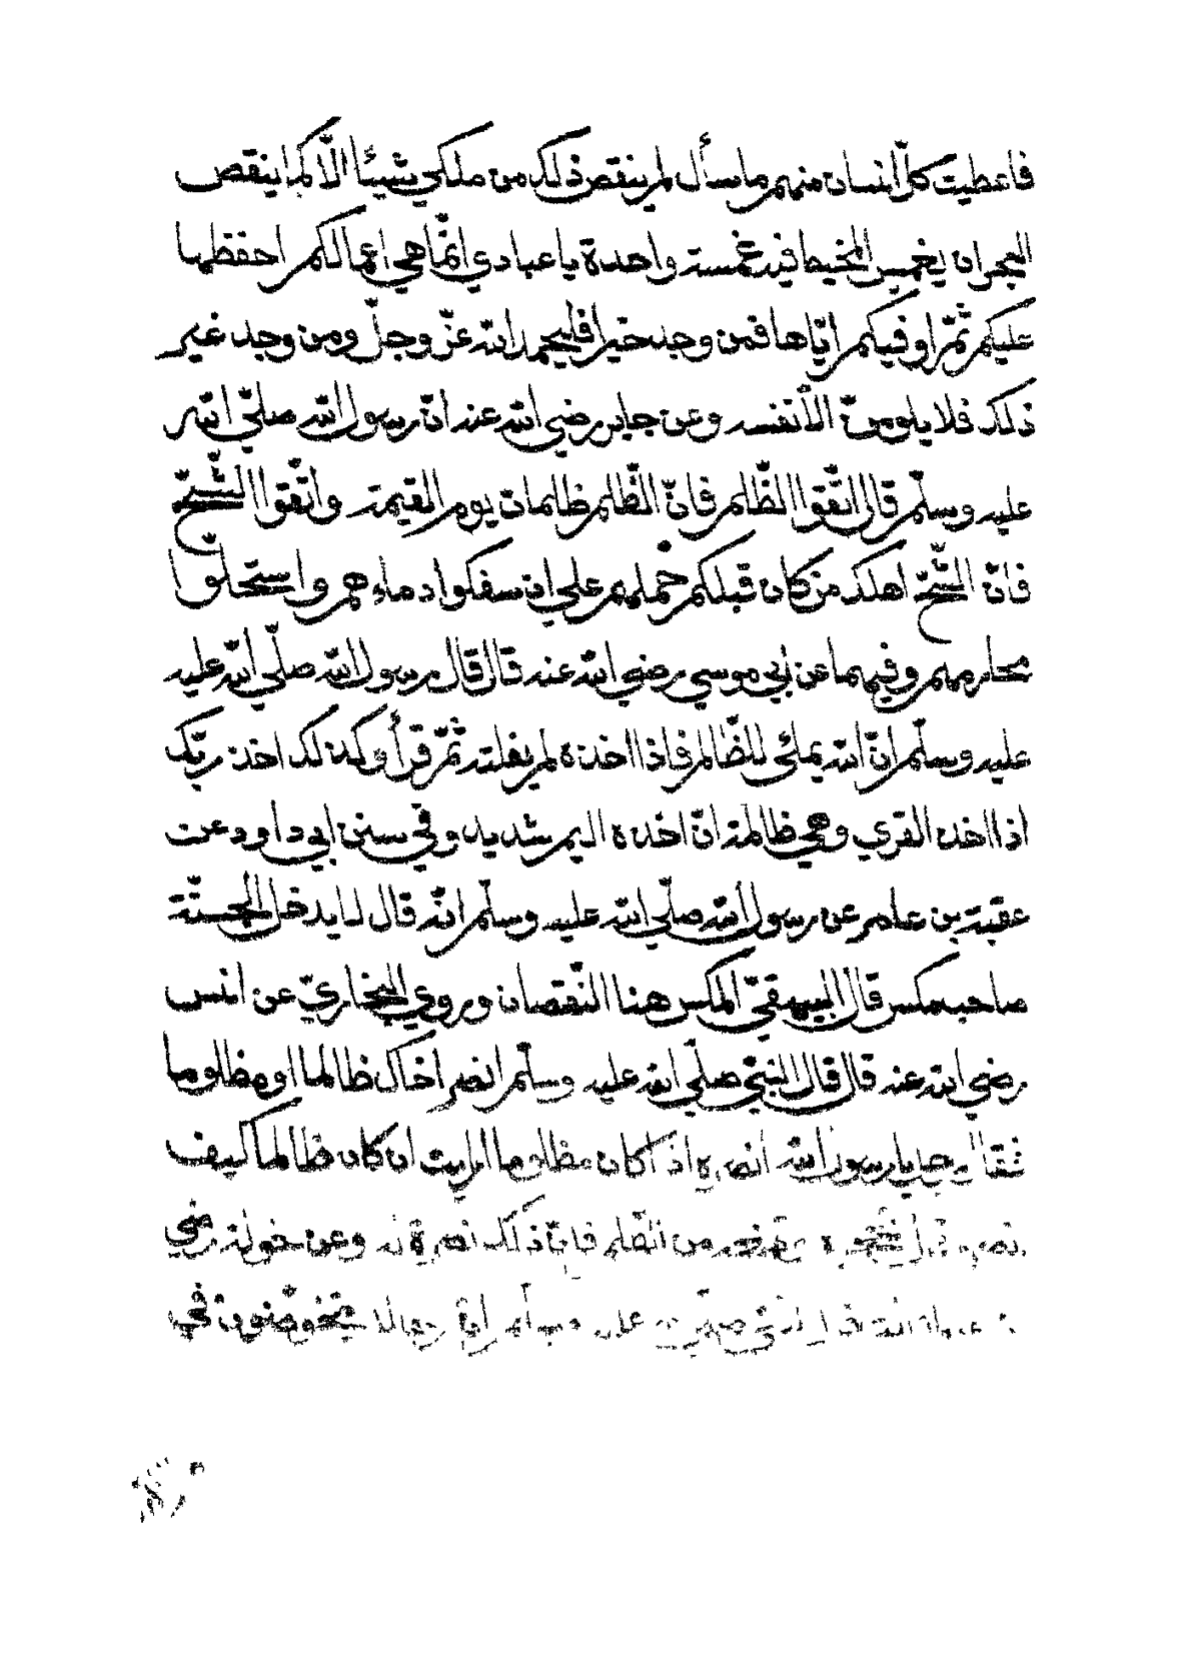 فاعطيت كلّ انسان منهم ما سأل لم ينقص ذلك من ملكي شيئا الّا كما ينقص
البحر ان يغمس المخيط فيه غمسة واحدة يا عبادي انّما هي اعمالكم احفظها
عليكم ثمّ اوفيكم ايّاها فمن وجد خيرا فليحمد الله عزّ وجلّ ومن وجد غير
ذلك فلا يلومنّ الّا نفسه وعن جابر رضي الله عنه انّ رسول الله صلّي الله
عليه وسلّم قال اتّقوا الظّلم فانّ الظّلم ظلمات يوم القيمة واتّقوا الشّحّ
فانّ الشّحّ اهلك من كان قبلكم حملهم علي ان سفكوا دماءهم واستحلّوا
محارمهم وفيهما عن ابي موسي رضي الله عنه قال قال رسول الله صلّي الله عليه
عليه وسلّم انّ الله يملئ للظّالم فاذا اخذه لم يفلته ثمّ قرأ وكذلك اخذ ربّك
اذا اخذ القري وهي ظالمة انّ اخذه اليم شديد وفي سنن ابي داود عن
عقبة بن عامر عن رسول الله صلّي الله عليه وسلّم انّه قال لا يدخل الجنّة
صاحب مكس قال البيهقيّ المكس هنا النّقصان وروي البخاريّ عن انس
رضي الله عنه قال قال النّبيّ صلّي الله عليه وسلّم انصر اخاك ظالما او مظلوما
فقال رجل يا رسول الله انصره اذا كان مظلوما ارايت ان كان ظالما كيف
من الظّلم فانّ ذلك نصرة له وعن خولة رضي
رجالا يتخوّضون في